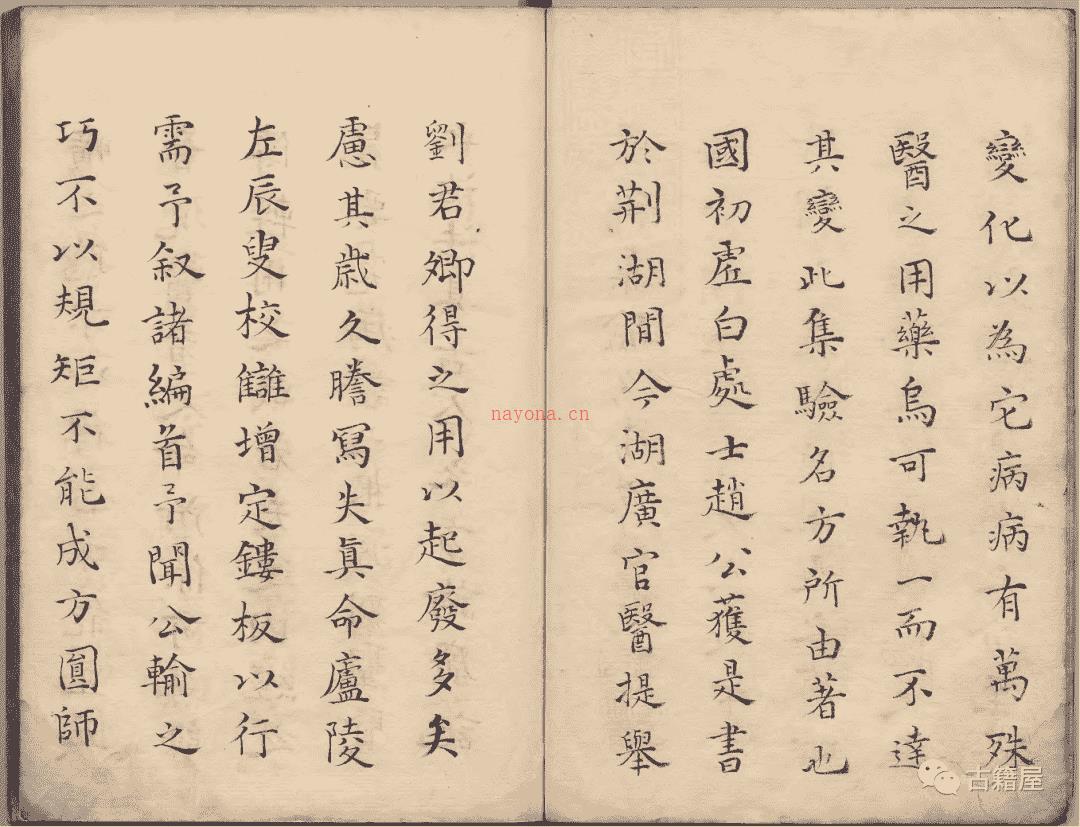 變化以為它病病有萬殊
醫之用藥烏可執一而不達
其變此集驗名方所由著也
國初虛白處士趙公獲是書
於荆湖間今湖廣官醫提舉
劉君卿得之用以起廢多矣
慮其歲久謄寫失眞命廬陵
左辰叟校讎增定鏤板以行
需予叙諸編首予聞公輸之
巧不以規矩不能成方圓師
nayona.cn
古籍屋